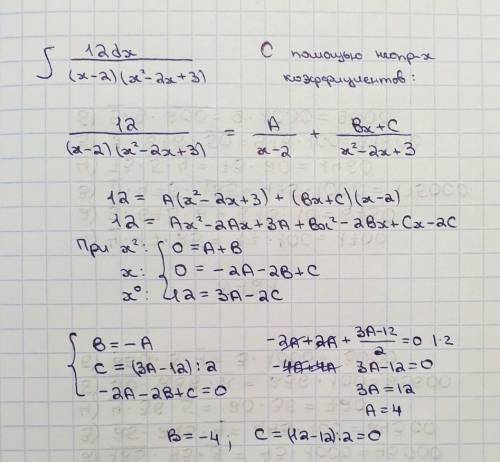 ∫ 12dx / (x-2)(x²-2x+3)
С помощью неопр-х
коэффициентов:
12 / (x-2)(x²-2x+3) = A / x-2 + Bx+C / x²-2x+3
12 = A(x²-2x+3) + (Bx+C)(x-2)
12 = Ax²-2Ax+3A+Bx²-2Bx+Cx-2C
При x²: { 0=A+B
x: 0=-2A-2B+C
x⁰: 12=3A-2C
{ B=-A
C=(3A-12):2
-2A-2B+C=0
-2A+2A+ 3A-12 / 2 =0 |·2
-4A+4A 3A-12=0
3A=12
A=4
B=-4; C=(12-12):2=0